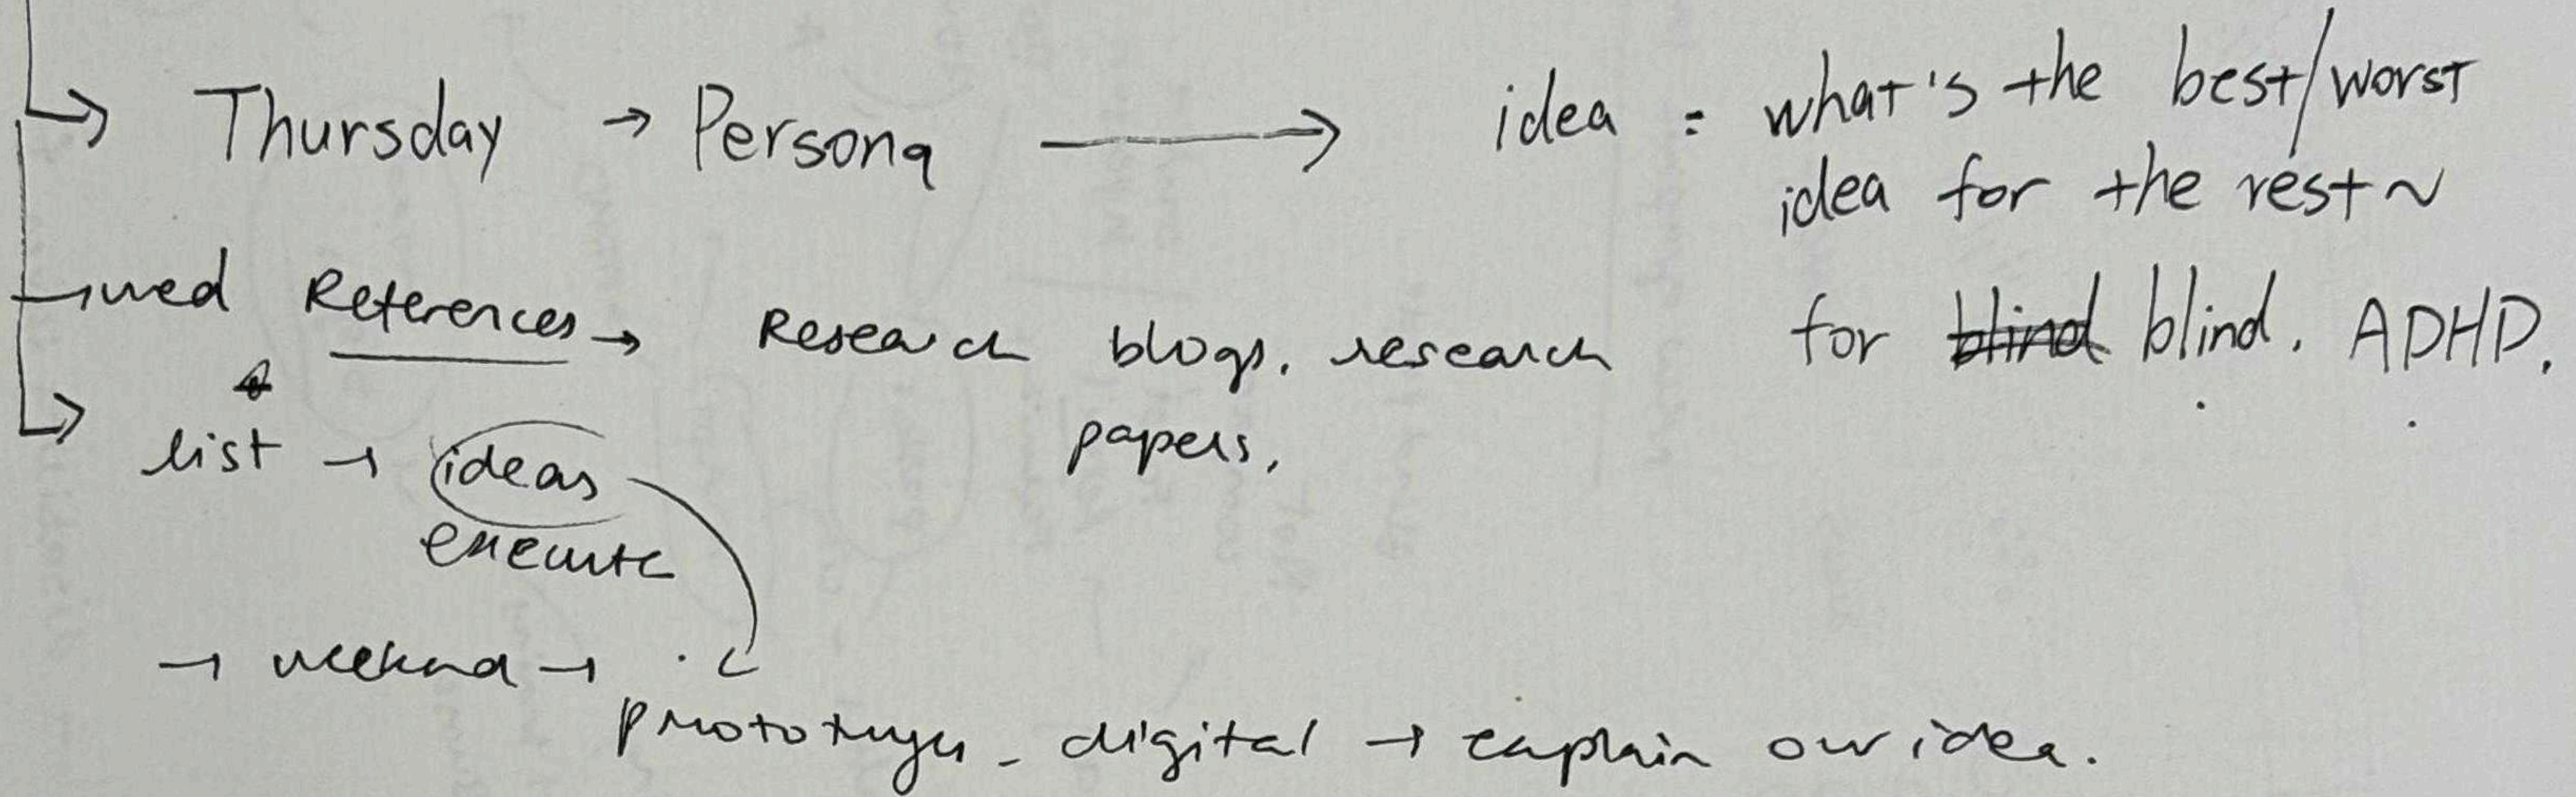 Thursday → Persona → idea : what's the best/worst
idea for the rest ~
→ wed References → Research blogs, research for blind blind, ADHD,
papers,
list → ideas
execute
→ weekend →
prototypes - digital → explain our idea.